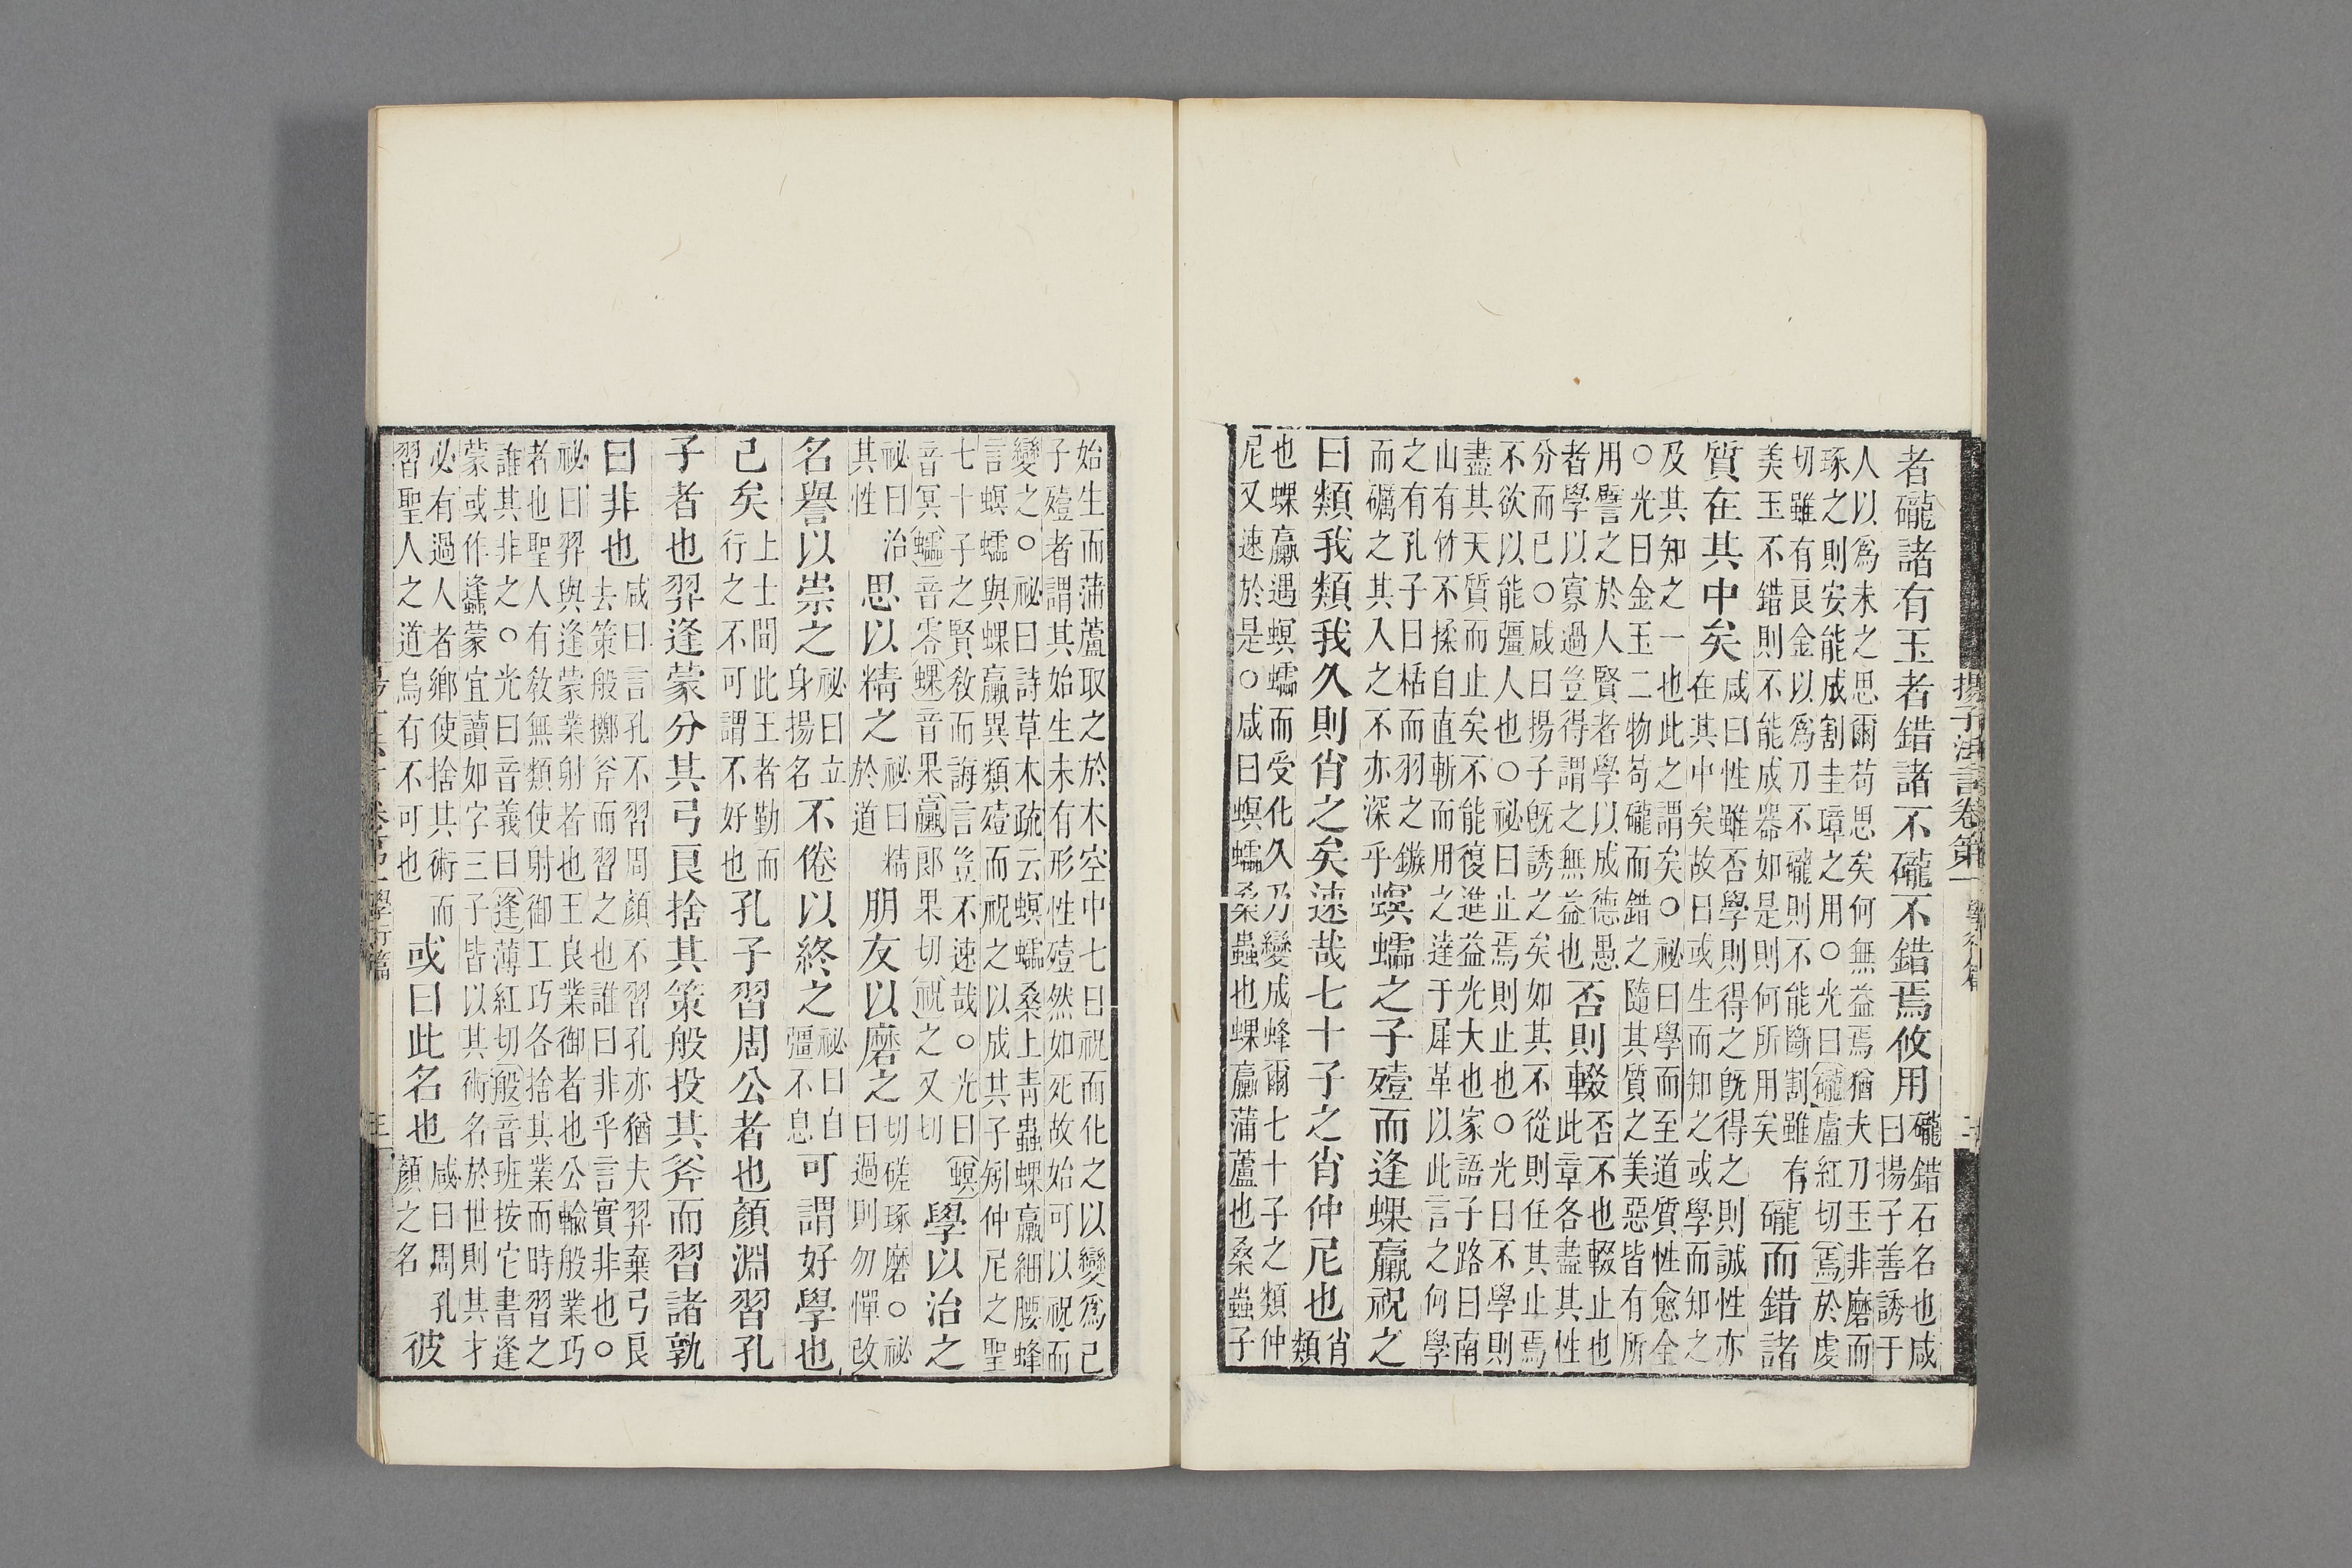 揚子法言卷第一 學行篇 二
者礲諸有玉者錯諸不礲不錯焉攸用
礲錯石名也咸
曰揚子善誘于
人以爲未之思爾苟思矣何無益焉猶夫刀玉非磨而
琢之則安能成割圭璋之用○光曰礲盧紅切焉於虔
切雖有良金以爲刀不礲則不能斷割雖有
美玉不錯則不能成器如是則何所用矣
礲而錯諸
質在其中矣
咸曰性雖否學則得之旣得之則誠性亦
在其中矣故曰或生而知之或學而知之
及其知之一也此之謂矣○祕曰學而至道質性愈全
○光曰金玉二物苟礲而錯之隨其質之美惡皆有所
用譬之於人賢者學以成德愚
者學以寡過豈得謂之無益也
否則輟
否不也輟止也
此章各盡其性
分而已○咸曰揚子旣誘之矣如其不從則任其止焉
不欲以能彊人也○祕曰止焉則止也○光曰不學則
盡其天質而止矣不能復進益光大也家語子路曰南
山有竹不揉自直斬而用之達于犀革以此言之何學
之有孔子曰栝而羽之鏃
而礪之其入之不亦深乎
螟蠕之子殪而逢蜾蠃祝之
曰類我類我久則肖之矣速哉七十子之肖仲尼也
肖
類
也蜾蠃遇螟蠕而受化久乃變成蜂爾七十子之類仲
尼又速於是○咸曰螟蠕桑蟲也蜾蠃蒲蘆也桑蟲子
始生而蒲蘆取之於木空中七日祝而化之以變爲己
子殪者謂其始生未有形性殪然如死故始可以祝而
變之○祕曰詩草木疏云螟蠕桑上青蟲蜾蠃細腰蜂
言螟蠕與蜾蠃異類殪而祝之以成其子矧仲尼之聖
七十子之賢敎而誨言豈不速哉○光曰螟
音冥蠕音零蜾音果蠃郎果切祝之又切
學以治之
祕曰治
其性
思以精之
祕曰精
於道
朋友以磨之
切磋琢磨○祕
曰過則勿憚改
名譽以崇之
祕曰立
身揚名
不倦以終之
祕曰自
彊不息
可謂好學也
已矣
上士間此王者勤而
行之不可謂不好也
孔子習周公者也顏淵習孔
子者也羿逢蒙分其弓良捨其策般投其斧而習諸孰
曰非也
咸曰言孔不習周顏不習孔亦猶夫羿棄弓良
去策般擲斧而習之也誰曰非乎言實非也○
祕曰羿與逢蒙業射者也王良業御者也公輸般業巧
者也聖人有敎無類使射御工巧各捨其業而時習之
誰其非之○光曰音義曰逢薄紅切般音班按它書逢
蒙或作蠭蒙宜讀如字三子皆以其術名於世則其才
必有過人者鄉使捨其術而
習聖人之道烏有不可也
或曰此名也
咸曰周孔
顏之名
彼
學行篇 三